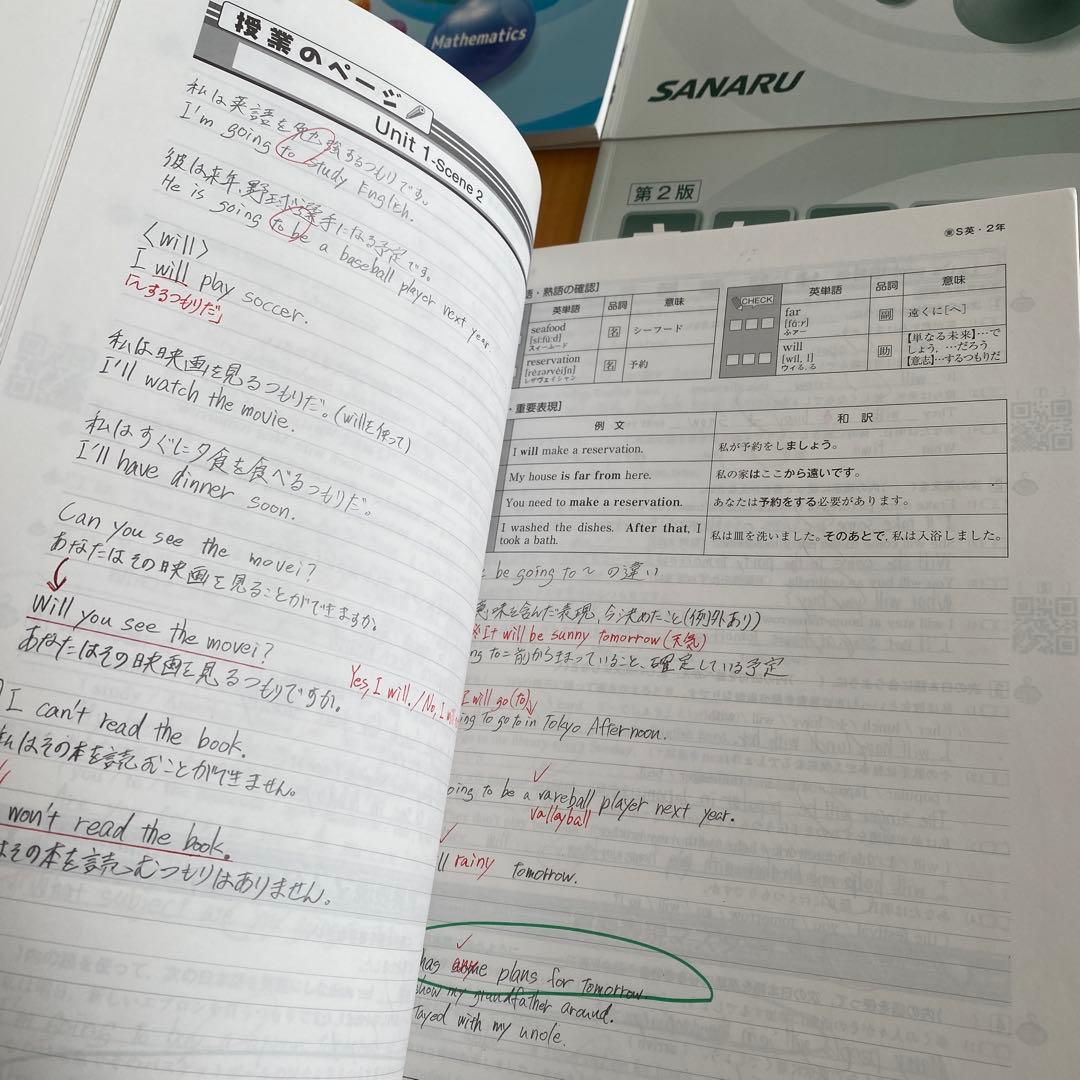 Mathematics
SANARU
第2版
授業のページ
Unit 1-Scene 2
私は英語を勉強するつもりです。
I'm going to study English.
彼は来年、野球選手になる予定です。
He is going to be a baseball player next year
〈will〉
I will play soccer.
「〜するつもりだ」
私は映画を見るつもりだ。(willを使って)
I'll watch the movie.
私はすぐに夕食を食べるつもりだ。
I'll have dinner soon.
Can you see the movei?
あなたはその映画を見ることができますか。
Will you see the movei?
あなたはその映画を見るつもりですか。
Yes, I will. / No, I
I can't read the book.
私はその本を読むことができません。
won't read the book.
はその本を読むつもりはありません。
S英・2年
語・熟語の確認]
英単語 品詞 意味
seafood 名 シーフード
[sí:fù:d]
スィーふード
reservation 名 予約
[rèzərvéiʃn]
レザヴェイシャン
CHECK 英単語 品詞 意味
far 副 遠くに[へ]
[fá:r]
ふァー
will 助 【単なる未来】…でしょう，…だろう
[wíl, l] 【意志】…するつもりだ
ウィる,る
・重要表現]
例文 和訳
I will make a reservation. 私が予約をしましょう。
My house is far from here. 私の家はここから遠いです。
You need to make a reservation. あなたは予約をする必要があります。
I washed the dishes. After that, I took a bath. 私は皿を洗いました。そのあとで,私は入浴しました。
be going to 〜 の違い
意味を含んだ表現、今決めたこと(例外あり)
※It will be sunny tomorrow (天気)
ng to=前から決まっていること、確定している予定
I will go (to)
ing to go to in Tokyo Afternoon.
oing to be a vareball player next year.
valleyball
ll rainy tomorrow.
has any plans for tomorrow.
show my grandfather around.
tayed with my uncle.